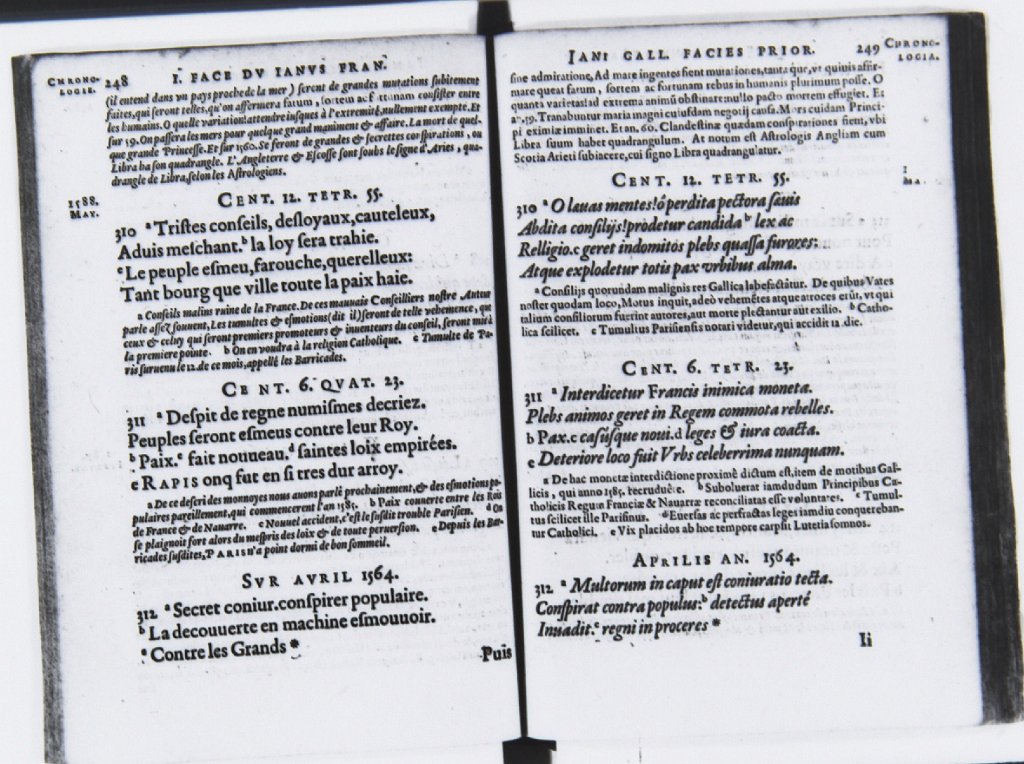 CHRONO-
LOGIE.
248
I. FACE DV IANVS FRAN.
(il entend dans vn pays proche de la mer) seront de grandes mutations subitement
faites, qui seront telles, qu'on affermera fatum, sortem ac fortunam consister entre
les humains. O quelle variation! attendre iusques à l'extremité, nullement exempte. Et
sur 59. On passera les mers pour quelque grand maniment & affaire. La mort de quel-
que grande Princesse. Et sur 1560. Se feront de grandes & secrettes conspirations, ou
Libra ha son quadrangle. L'Angleterre & Escosse sont soubs le signe d'Aries, qua-
drangle de Libra, selon les Astrologiens.
1588.
MAY.
CENT. 12. TETR. 55.
310 ᵃ Tristes conseils, desloyaux, cauteleux,
Aduis meschant. ᵇ la loy sera trahie.
ᶜ Le peuple esmeu, farouche, querelleux:
Tant bourg que ville toute la paix haie.
a Conseils malins ruine de la France. De ces mauuais Conseilliers nostre Autur
parle assez souuent, Les tumultes & esmotions (dit il) seront de telle vehemence, que
ceux & celuy qui seront premiers promoteurs & inuenteurs du conseil, seront mis à
la premiere pointe. b On en voudra à la religion Catholique. c Tumulte de Pa-
ris suruenu le 12. de ce mois, appellé les Barricades.
CENT. 6. QVAT. 23.
311 ᵃ Despit de regne numismes decriez.
Peuples seront esmeus contre leur Roy.
ᵇ Paix. ᶜ fait nouueau, ᵈ saintes loix empirées.
e RAPIS onq fut en si tres dur arroy.
a De ce descri des monnoyes nous auons parlé prochainement, & des esmotions po-
pulaires pareillement, qui commencerent l'an 1585. b Paix couuerte entre les Rois
de France & de Nauarre. c Nouuel accident, c'est le susdit trouble Parisien. d On
se plaignoit fort alors du mespris des loix & de toute peruersion. e Depuis les Bar-
ricades susdites, PARIS n'a point dormi de bon sommeil.
SVR AVRIL 1564.
312 ᵃ Secret coniur. conspirer populaire.
ᵇ La decouuerte en machine esmouuoir.
ᶜ Contre les Grands *
Puis
IANI GALL. FACIES PRIOR.
249
CHRONO-
LOGIA.
sine admiratione, Ad mare ingentes fient mutationes, tanta que, vt quiuis affir-
mare queat fatum, sortem ac fortunam rebus in humanis plurimum posse. O
quanta varietas! ad extrema animũ obstinare: nullo pacto mortem effugiet. Et
aº. 59. Tranabuntur maria magni cuiusdam negotij causa. Mors cuidam Princi-
pi eximiæ imminet. Et an. 60. Clandestinæ quædam conspirationes fient, vbi
Libra suum habet quadrangulum. At notum est Astrologis Angliam cum
Scotia Arieti subiacere, cui signo Libra quadrangulatur.
CENT. 12. TETR. 55.
310 ᵃ O læuas mentes! ó perdita pectora sæuis
Abdita consilijs! prodetur candida ᵇ lex ac
Relligio. c geret indomitos plebs quassa furores:
Atque explodetur totis pax vrbibus alma.
a Consilijs quorundam malignis res Gallica labefactitur. De quibus Vates
noster quodam loco, Motus inquit, adeò vehemẽtes atque atroces erũt, vt qui
talium consiliorum fuerint autores, aut morte plectantur aut exilio. b Catho-
lica scilicet. c Tumultus Parisiensis notari videtur, qui accidit 12. die.
CENT. 6. TETR. 23.
311 ᵃ Interdicetur Francis inimica moneta.
Plebs animos geret in Regem commota rebelles.
b Pax. c casúsque noui. d leges & iura coacta.
e Deteriore loco fuit Vrbs celeberrima nunquam.
a De hac monetæ interdictione proximè dictum est, item de motibus Gal-
licis, qui anno 1585. recruduêre. b Suboluerat iamdudum Principibus Ca-
tholicis Regum Franciæ & Nauarræ reconciliatas esse voluntates. c Tumul-
tus scilicet ille Parisinus. d Euersas ac perfractas leges iamdiu conquereban-
tur Catholici. e Vix placidos ab hoc tempore carpsit Lutetia somnos.
APRILIS AN. 1564.
312 ᵃ Multorum in caput est coniuratio tecta.
Conspirat contra populus: ᵇ detectus apertè
Inuadit. ᶜ regni in proceres *
Ii